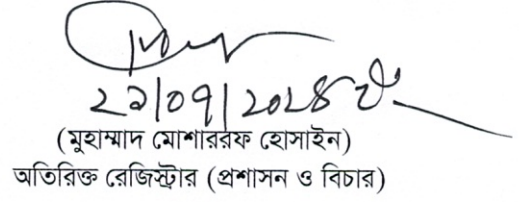 ২৯|০৭|২০২৪ খ্রি.
(মুহাম্মাদ মোশাররফ হোসাইন)
অতিরিক্ত রেজিস্ট্রার (প্রশাসন ও বিচার)